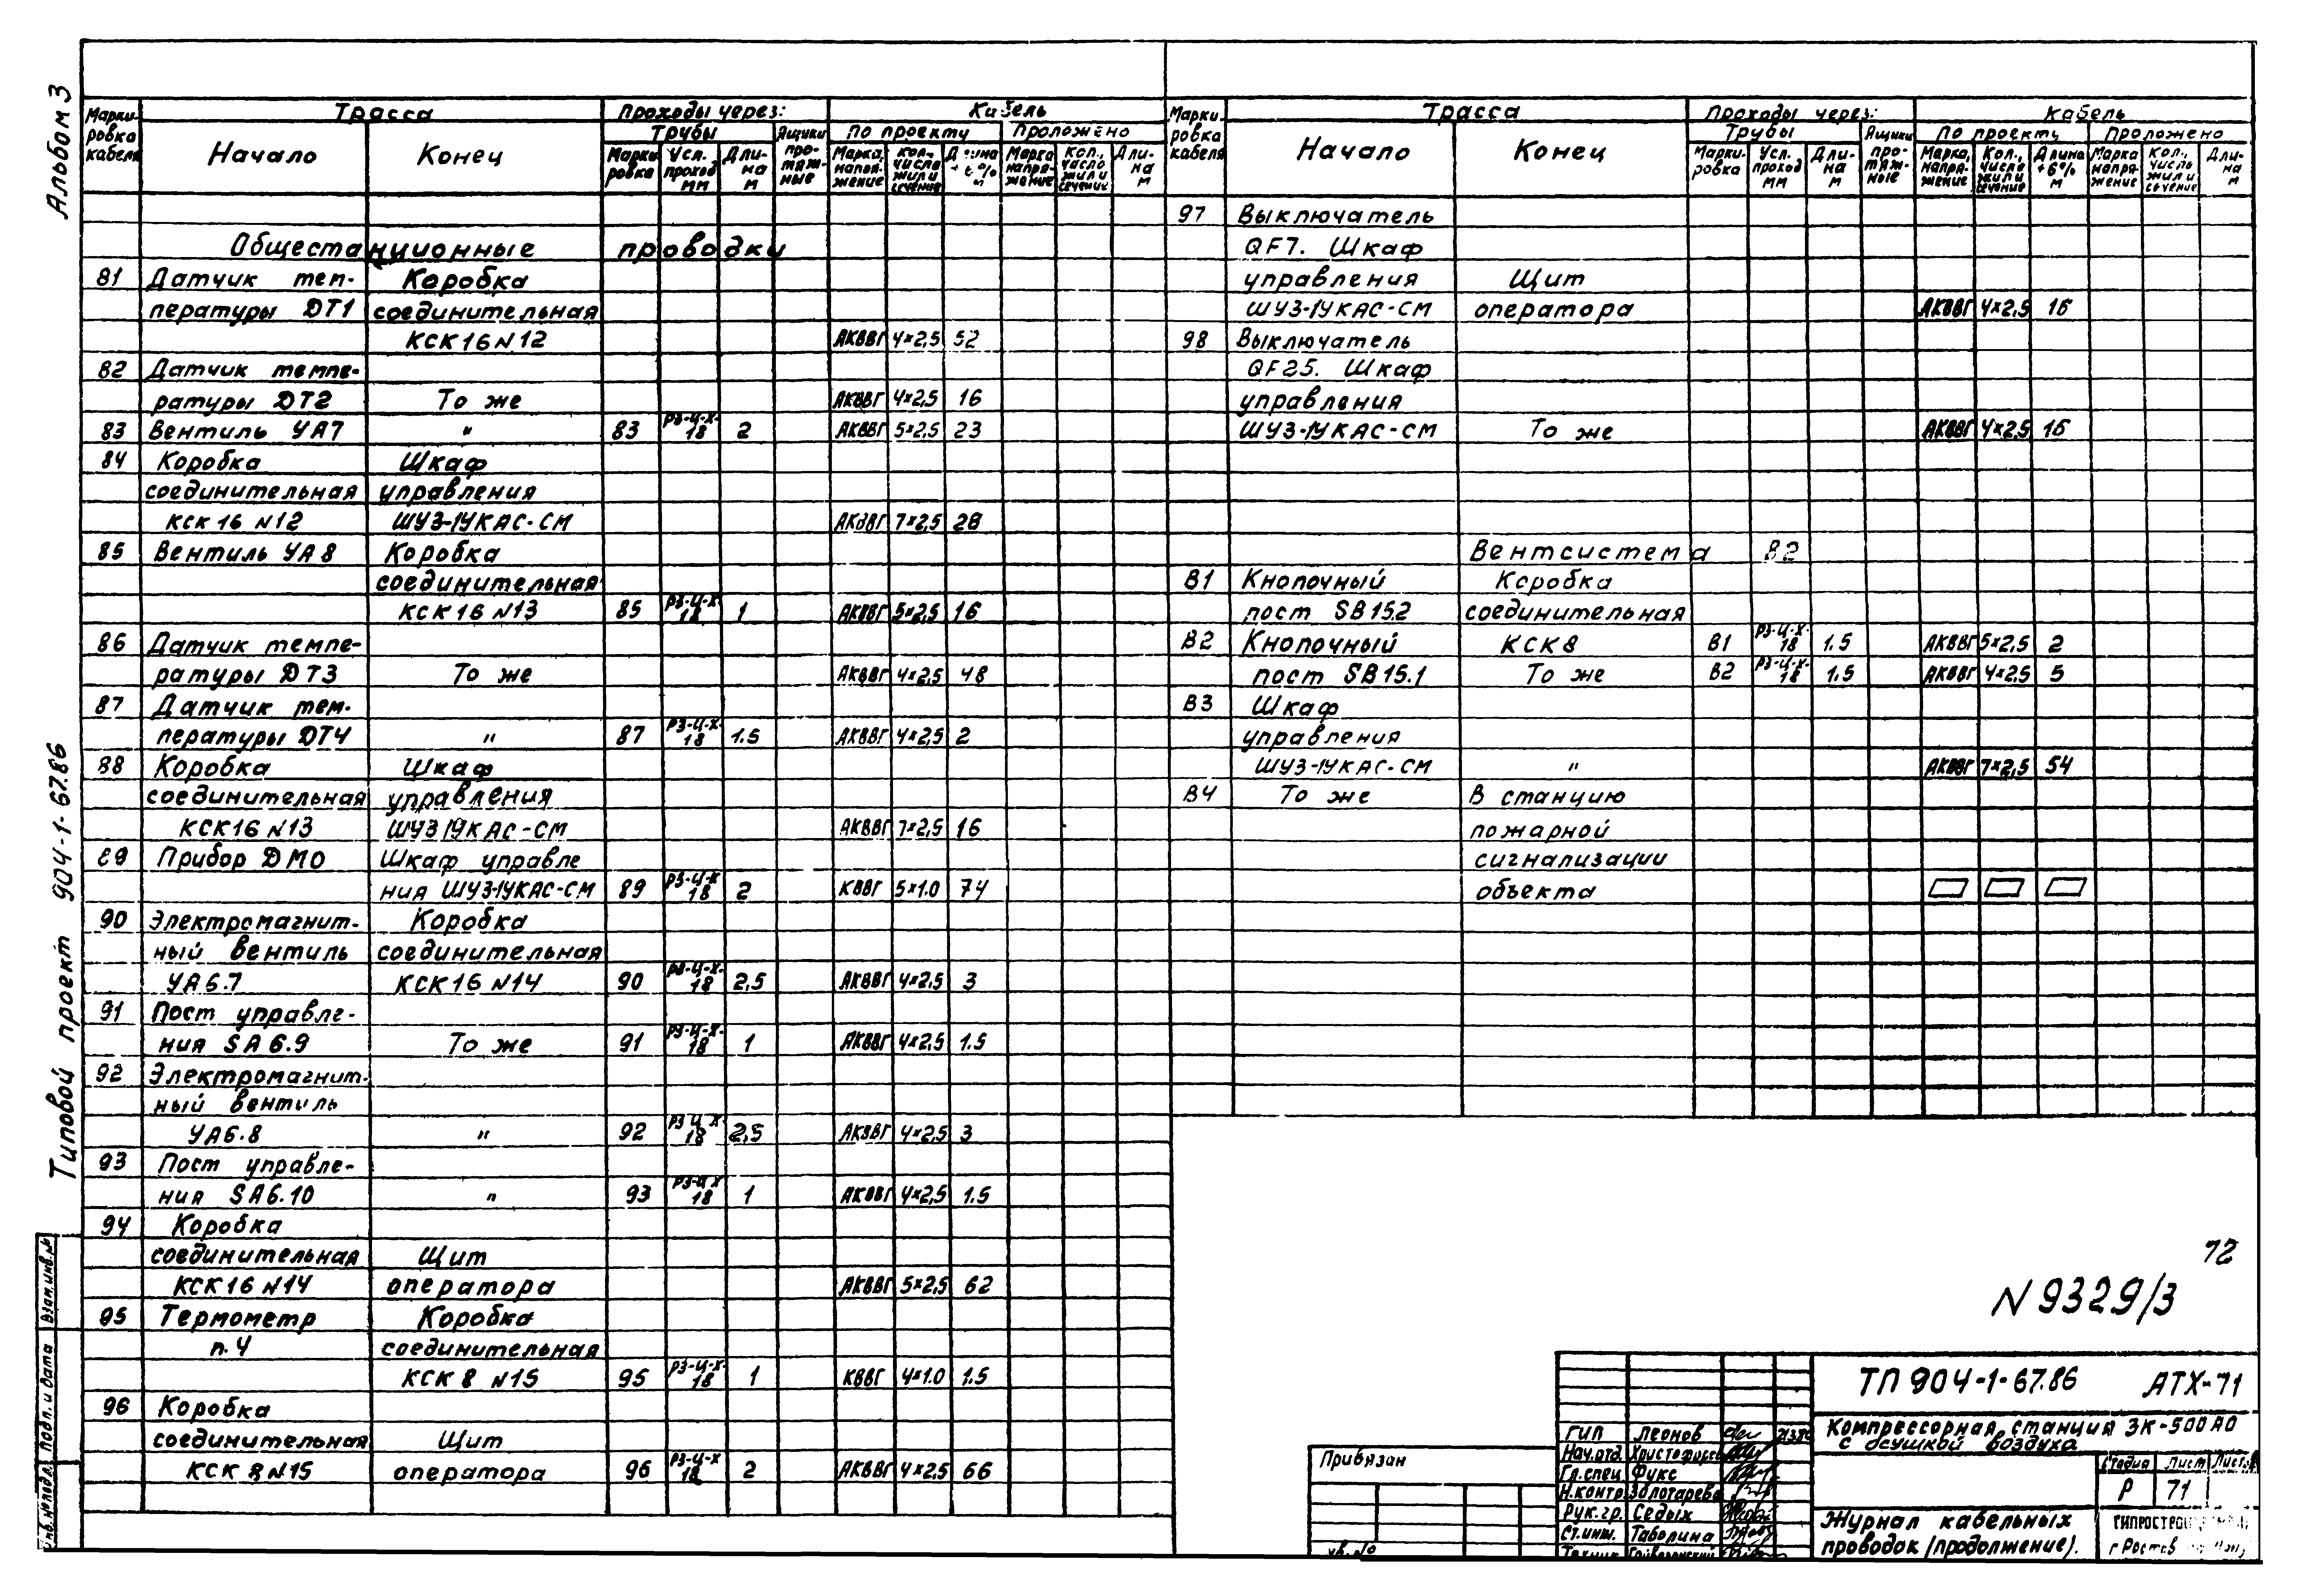 Альбом 3
Типовой проект 904-1-67.86
Взам. инв. №
Подп. и дата
Инв. № подл.
Марки-ровка кабеля | Трасса | Проходы через: | Кабель
Начало | Конец | Трубы | Ящики про-тяж-ные | По проекту | Проложено
Марки ровка | Усл. проход мм | Дли-на м | Марка, напря-жение | Кол., число жил и сечение | Длина + 6% м | Марка напря-жение | Кол., число жил и сечение | Дли-на м
Общестанционные проводки
81 Датчик тем- Коробка
пературы DT1 соединительная
КСК16 N12 АКВВГ 4×2,5 52
82 Датчик темпе-
ратуры DT2 То же АКВВГ 4×2,5 16
83 Вентиль YA7 " 83 РЗ-Ц-Х-18 2 АКВВГ 5×2,5 23
84 Коробка Шкаф
соединительная управления
КСК 16 N12 ШУЗ-1УКАС-СМ АКВВГ 7×2,5 28
85 Вентиль YA8 Коробка
соединительная
КСК16 N13 85 РЗ-Ц-Х-18 1 АКВВГ 5×2,5 16
86 Датчик темпе-
ратуры DT3 То же АКВВГ 4×2,5 48
87 Датчик тем-
пературы DT4 " 87 РЗ-Ц-Х-18 1.5 АКВВГ 4×2,5 2
88 Коробка Шкаф
соединительная управления
КСК16 N13 ШУЗ 1УКАС-СМ АКВВГ 7×2,5 16
89 Прибор DM0 Шкаф управле
ния ШУЗ-1УКАС-СМ 89 РЗ-Ц-Х 18 2 КВВГ 5×1.0 74
90 Электромагнит- Коробка
ный вентиль соединительная
YA6.7 КСК16 N14 90 РЗ-Ц-Х-18 2,5 АКВВГ 4×2,5 3
91 Пост управле-
ния SA6.9 То же 91 РЗ-Ц-Х-18 1 АКВВГ 4×2,5 1.5
92 Электромагнит-
ный вентиль
YA6.8 " 92 РЗ Ц Х 18 2,5 АКВВГ 4×2,5 3
93 Пост управле-
ния SA6.10 " 93 РЗ-Ц Х 18 1 АКВВГ 4×2,5 1.5
94 Коробка
соединительная Щит
КСК16 N14 оператора АКВВГ 5×2,5 62
95 Термометр Коробка
п.4 соединительная
КСК 8 N15 95 РЗ-Ц-Х-18 1 КВВГ 4×1.0 1.5
96 Коробка
соединительная Щит
КСК 8 N15 оператора 96 РЗ-Ц-Х 18 2 АКВВГ 4×2,5 66
Марки-ровка кабеля | Трасса | Проходы через: | Кабель
Начало | Конец | Трубы | Ящики про-тяж-ные | По проекту | Проложено
Марки-ровка | Усл. проход мм | Дли-на м | Марка, напря-жение | Кол., число жил и сечение | Длина +6% м | Марка напря-жение | Кол., число жил и сечение | Дли-на м
97 Выключатель
QF7. Шкаф
управления Щит
ШУЗ-1УКАС-СМ оператора АКВВГ 4×2,5 16
98 Выключатель
QF25. Шкаф
управления
ШУЗ-1УКАС-СМ То же АКВВГ 4×2,5 16
Вентсистема В2
В1 Кнопочный Коробка
пост SB15.2 соединительная
В2 Кнопочный КСК8 В1 РЗ-Ц-Х-18 1.5 АКВВГ 5×2,5 2
пост SB15.1 То же В2 РЗ-Ц-Х-18 1.5 АКВВГ 4×2,5 5
В3 Шкаф
управления
ШУЗ-1УКАС-СМ " АКВВГ 7×2,5 54
В4 То же В станцию
пожарной
сигнализации
объекта
72
N 9329/3
ТП 904-1-67.86 АТХ-71
Компрессорная станция 3К-500 АО
с осушкой воздуха
Привязан
ГИП Леонов
Нач.отд. Христофоров
Гл.спец Фукс
Н.контр. Золотарева
Рук.гр. Седых
Ст.инж. Таболина
Техник Гайворонский
Стадия Лист Листов
Р 71
Журнал кабельных
проводок (продолжение).
г Ростов